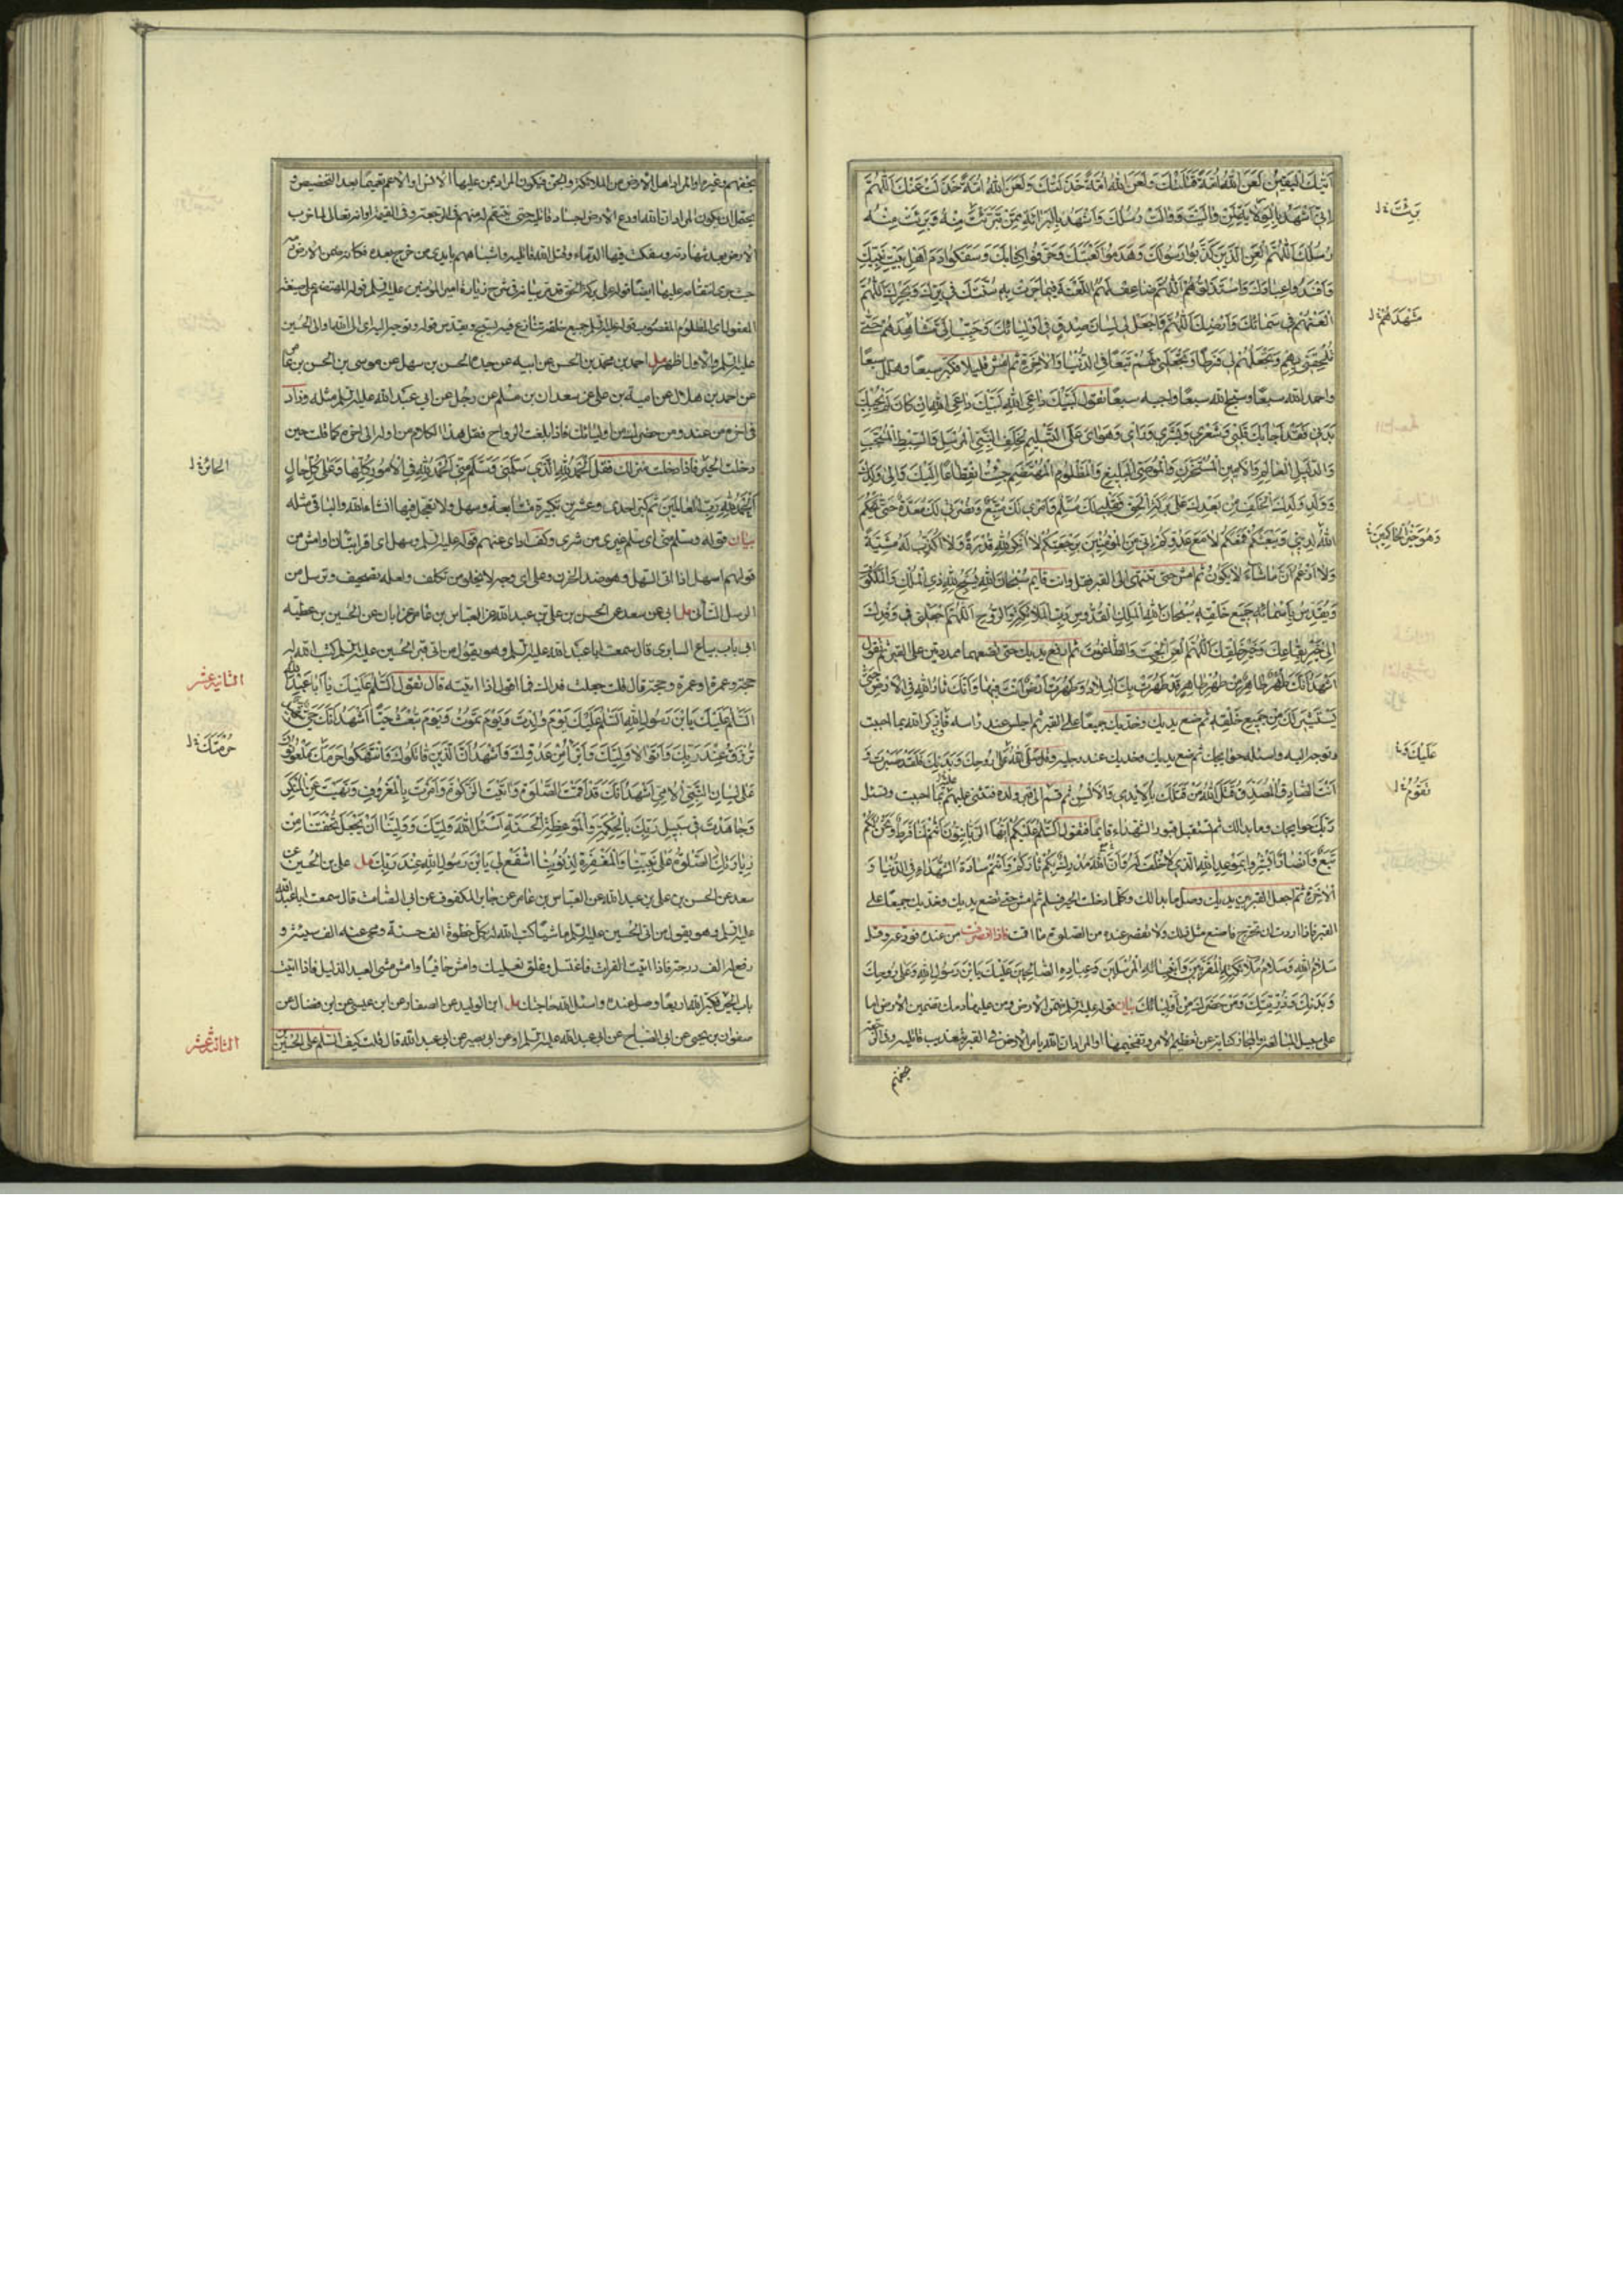 اَتيٰكَ الْيَقينُ لَعَنَ اللهُ اُمَّةً قَتَلَتْكَ وَلَعَنَ اللهُ اُمَّةً خَذَلَتْكَ وَلَعَنَ اللهُ اُمَّةً خَذَلَتْ عَنْكَ اَللّٰهُمَّ
اِنّي اُشْهِدُ بِالْوِلايَةِ لِمَنْ وٰالَيْتَ وَوٰالَتْ رُسُلُكَ وَاَشْهَدُ بِالْبَرٰائَةِ مِمَّنْ تَبَرَّئْتَ مِنْهُ وَبَرِئَتْ مِنْهُ
رُسُلُكَ اَللّٰهُمَّ الْعَنِ الَّذينَ كَذَّبُوا رَسُولَكَ وَهَدَمُوا كَعْبَتَكَ وَحَرَّفُوا كِتٰابَكَ وَسَفَكُوا دَمَ اَهْلِ بَيْتِ نَبِيِّكَ
وَاَفْسَدُوا عِبٰادَكَ وَاسْتَذَلُّوهُمْ اَللّٰهُمَّ ضٰاعِفْ لَهُمُ اللَّعْنَةَ فيمٰا جَرَتْ بِهِ سُنَّتُكَ في بَرِّكَ وَبَحْرِكَ اَللّٰهُمَّ
الْعَنْهُمْ في سَمٰائِكَ وَاَرْضِكَ اَللّٰهُمَّ وَاجْعَلْ لي لِسٰانَ صِدْقٍ في اَوْلِيٰائِكَ وَحَبِّبْ اِلَيَّ مَشٰاهِدَهُمْ حَتّٰى
تُلْحِقَني بِهِمْ وَتَجْعَلَهُمْ لي فَرَطًا وَتَجْعَلَني لَهُمْ تَبَعًا فِي الدُّنْيٰا وَالْاٰخِرَةِ ثم امش قليلا فكبّر سبعًا وهلل سبعًا
واحمد الله سبعًا وسبح لله سبعًا واجبه سبعًا تقول لَبَّيْكَ دٰاعِيَ اللهِ لَبَّيْكَ دٰاعِيَ اللهِ اِنْ كٰانَ لَمْ يُجِبْكَ
بَدَني فَقَدْ اَجٰابَكَ قَلْبي وَشَعْري وَبَشَري وَرَأْيي وَهَوٰايَ عَلَى التَّسْليمِ لِخَلَفِ النَّبِيِّ الْمُرْسَلِ وَالسِّبْطِ الْمُنْتَجَبِ
وَالدَّليلِ الْعٰالِمِ وَالْاَمينِ الْمُسْتَخْزَنِ وَالْمُوصِي الْبَليغِ وَالْمَظْلُومِ الْمُهْتَضَمِ جِئْتُ انْقِطٰاعًا اِلَيْكَ وَاِلىٰ وَلَدِكَ
وَوَلَدِ وَلَدِكَ الْخَلَفِ مِنْ بَعْدِكَ عَلىٰ بَرَكَةِ الْحَقِّ فَقَلْبي لَكَ مُسَلِّمٌ وَاَمْري لَكَ مُتَّبِعٌ وَنُصْرَتي لَكَ مُعَدَّةٌ حَتّٰى يَحْكُمَ
اللهُ لِديني وَيَبْعَثَكُمْ فَمَعَكُمْ لٰا مَعَ عَدُوِّكُمْ اِنّي مِنَ الْمُؤْمِنينَ بِرَجْعَتِكُمْ لٰا اُنْكِرُ لِلّٰهِ قُدْرَةً وَلٰا اُكَذِّبُ لَهُ مَشِيَّةً
وَلٰا اَزْعَمُ اَنَّ مٰا شٰاءَ لٰا يَكُونُ ثم امش حتى تنتهي الى القبر فقل وانت قايم سُبْحٰانَ اللهِ يُسَبِّحُ لِلّٰهِ ذِي الْمُلْكِ وَالْمَلَكُوتِ
وَيُقَدِّسُ بِاَسْمٰائِهِ جَميعُ خَلْقِهِ سُبْحٰانَ اللهِ الْمَلِكِ الْقُدُّوسِ رَبِّ الْمَلٰائِكَةِ وَالرُّوحِ اَللّٰهُمَّ اجْعَلْني في وَفْدِكَ
اِلىٰ خَيْرِ بِقٰاعِكَ وَخَيْرِ خَلْقِكَ اَللّٰهُمَّ الْعَنِ الْجِبْتَ وَالطّٰاغُوتَ ثم ارفع يديك حتى تضعهما ممدودتين على القبر ثم تقول
اَشْهَدُ اَنَّكَ طُهْرٌ طٰاهِرٌ مِنْ طُهْرٍ طٰاهِرٍ قَدْ طَهُرَتْ بِكَ الْبِلٰادُ وَطَهُرَتْ اَرْضٌ اَنْتَ فيهٰا وَاَنَّكَ ثٰارُ اللهِ فِي الْاَرْضِ حَتّٰى
يَسْتَثيرَ لَكَ مِنْ جَميعِ خَلْقِهِ ثم ضع يديك وخديك جميعًا على القبر ثم اجلس عند راسه فاذكر الله بما احببت
وتوجه اليه واسئله حوايجك ثم ضع يديك وخديك عند رجليه وقل صَلَّى اللهُ عَلىٰ رُوحِكَ وَبَدَنِكَ فَلَقَدْ صَبَرْتَ وَ
اَنْتَ الصّٰادِقُ الْمُصَدَّقُ قَتَلَ اللهُ مَنْ قَتَلَكَ بِالْاَيْدي وَالْاَلْسُنِ ثم قم الى قبر ولده فتثني عليهم بما احببت وتسئل
ربك حوايجك وما بدا لك ثم تستقبل قبور الشهداء قايمًا فتقول اَلسَّلٰامُ عَلَيْكُمْ اَيُّهَا الرَّبّٰانِيُّونَ اَنْتُمْ لَنٰا فَرَطٌ وَنَحْنُ لَكُمْ
تَبَعٌ وَاَنْصٰارٌ اَبْشِرُوا بِمَوْعِدِ اللهِ الَّذي لٰا خُلْفَ لَهُ وَاَنَّ اللهَ مُدْرِكٌ بِكُمْ ثٰارَكُمْ وَاَنْتُمْ سٰادَةُ الشُّهَدٰاءِ فِي الدُّنْيٰا وَ
الْاٰخِرَةِ ثم اجعل القبر بين يديك وصل ما بدا لك وكلما دخلت الحير فسلم ثم امش حتى تضع يديك وخديك جميعًا على
القبر فاذا اردت ان تخرج فاصنع مثل ذلك ولا تقصر عنده من الصلوة ما اقمت فاذا انصرفت من عنده فودعه وقل
سَلٰامُ اللهِ وَسَلٰامُ مَلٰائِكَتِهِ الْمُقَرَّبينَ وَاَنْبِيٰائِهِ الْمُرْسَلينَ وَعِبٰادِهِ الصّٰالِحينَ عَلَيْكَ يَا بْنَ رَسُولِ اللهِ وَعَلىٰ رُوحِكَ
وَبَدَنِكَ وَذُرِّيَّتِكَ وَمَنْ حَضَرَكَ مِنْ اَوْلِيٰائِكَ بيان قوله عليه السلم ضمن الارض ومن عليها دمك تضمين الارض اما
على سبيل المبالغة والمجاز كناية عن تعظيم الامر وتفخيمها او المراد ان الله يامر الارض في القبر بتعذيب قاتليه وفي الرجعة
بخسفهم
بَرِئَتَ خ ل
مَشْهَدَهُمْ خ ل
وَهُوَ خَيْرُ الْحٰاكِمينَ خ
عَلَيْكَ وَ خ
تَقُومُ خ ل
بخسفهم وغيره او المراد اهل الارض من الملائكة والجن فيكون المراد بمن عليها الانس او الاعم تعميمًا بعد التخصيص و
يحتمل ان يكون المراد ان الله اودع الارض اجساد قاتليه حتى ينتقم له منهم في الرجعة وفي القيمة او انه تعالى لما ضرب
الارض بعد شهادته وسفكت فيها الدماء وقتل الله قاتليه واشباههم بايدي من خرج بعده فكانه ضمن الارض دمه
حيث جرى انتقامه عليها ايضا قوله على بركة الحق قد مر بيانه في شرح زيارة امير المؤمنين عليه السلم قوله المهتضم على صيغة
المفعول اي المظلوم المغصوب قوله عليه السلم جميع خلقه تنازع فيه يسبح ويقدس قوله وتوجه اليه اي الى الله او الى الحسين
عليه السلم والاول اظهر مل احمد بن محمد بن الحسن عن ابيه عن جده الحسن بن سهل عن موسى بن الحسن بن عامر
عن احمد بن هلال عن امية بن علي عن سعدان بن مسلم عن رجل عن ابي عبد الله عليه السلم مثله وزاد
في اخره من عندي ومن حضرك من اوليائك فاذا بلغت الرواح فقل هذا الكلام من اوله الى اخره كما قلت حين
دخلت الحير فاذا دخلت منزلك فقل اَلْحَمْدُ لِلّٰهِ الَّذي سَلَّمَني وَسَلَّمَ مِنّي اَلْحَمْدُ لِلّٰهِ فِي الْاُمُورِ كُلِّهٰا وَعَلىٰ كُلِّ حٰالٍ
اَلْحَمْدُ لِلّٰهِ رَبِّ الْعٰالَمينَ ثم كبر احدى وعشرين تكبيرة متتابعة وسهل ولا تعجل فيها ان شاء الله والباقي مثله
بيان قوله وسلم مني اي سلم غيري من شري وكف اذاي عنهم قوله عليه السلم وسهل اي اقرا بتان وامش من
قولهم اسهل اذا اتى السهل وهو ضد الحزن وعلى اي وجه لا يخلو من تكلف ولعله تصحيف وترسل من
الرسل التأني مل ابي عن سعد عن الحسن بن علي بن عبد الله عن العباس بن عامر عن ابان عن الحسين بن عطية
ابي ناب بياع السابري قال سمعت ابا عبد الله عليه السلم وهو يقول من اتى قبر الحسين عليه السلم كتب الله له
حجة وعمرة او عمرة وحجة قال قلت جعلت فداك فما اقول اذا اتيته قال تقول اَلسَّلٰامُ عَلَيْكَ يٰا اَبٰا عَبْدِ اللهِ
اَلسَّلٰامُ عَلَيْكَ يَا بْنَ رَسُولِ اللهِ اَلسَّلٰامُ عَلَيْكَ يَوْمَ وُلِدْتَ وَيَوْمَ تَمُوتُ وَيَوْمَ تُبْعَثُ حَيًّا اَشْهَدُ اَنَّكَ حَيٌّ شَهيدٌ
تُرْزَقُ عِنْدَ رَبِّكَ وَاَتَوٰالىٰ وَلِيَّكَ وَاَبْرَأُ مِنْ عَدُوِّكَ وَاَشْهَدُ اَنَّ الَّذينَ قٰاتَلُوكَ وَانْتَهَكُوا حُرْمَتَكَ مَلْعُونُونَ
عَلىٰ لِسٰانِ النَّبِيِّ الْاُمِّيِّ اَشْهَدُ اَنَّكَ قَدْ اَقَمْتَ الصَّلٰوةَ وَاٰتَيْتَ الزَّكٰوةَ وَاَمَرْتَ بِالْمَعْرُوفِ وَنَهَيْتَ عَنِ الْمُنْكَرِ
وَجٰاهَدْتَ في سَبيلِ رَبِّكَ بِالْحِكْمَةِ وَالْمَوْعِظَةِ الْحَسَنَةِ اَسْئَلُ اللهَ وَلِيَّكَ وَوَلِيَّنٰا اَنْ يَجْعَلَ تُحْفَتَنٰا مِنْ
زِيٰارَتِكَ الصَّلٰوةَ عَلىٰ نَبِيِّنٰا وَالْمَغْفِرَةَ لِذُنُوبِنٰا اشْفَعْ لي يَا بْنَ رَسُولِ اللهِ عِنْدَ رَبِّكَ مل علي بن الحسين عن
سعد عن الحسن بن علي بن عبد الله عن العباس بن عامر عن جابر المكفوف عن ابي الصامت قال سمعت ابا عبد الله
عليه السلم وهو يقول من اتى الحسين عليه السلم ماشيًا كتب الله له بكل خطوة الف حسنة ومحى عنه الف سيئة و
رفع له الف درجة فاذا اتيت الفرات فاغتسل وعلق نعليك وامش حافيًا وامش مشي العبد الذليل فاذا اتيت
باب الحير فكبر الله اربعًا وصل عنده واسئل الله حاجتك مل ابن الوليد عن الصفار عن ابن عيسى عن ابن فضال عن
صفوان بن يحيى عن ابي الصباح عن ابي عبد الله عليه السلم او عن ابي بصير عن ابي عبد الله قال قلت كيف السلم على الحسين
الحائر خ ل
الثانية عشر
حُرْمَتَكَ خ ل
الثالثة عشر